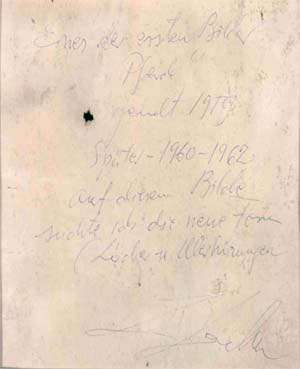 Eines der ersten Bilder
Pferde
gemalt
Später - 1960 - 1962
auf diesem Bilde
suchte ich die neue Form
(Löcher u.